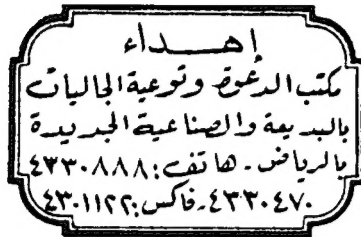 إهــداء
مكتب الدعوة وتوعية الجاليات
بالبديعة والصناعية الجديدة
بالرياض . هاتف : ٤٣٣٠٨٨٨
٤٣٣٠٤٧٠ . فاكس : ٤٣٠١١٢٢